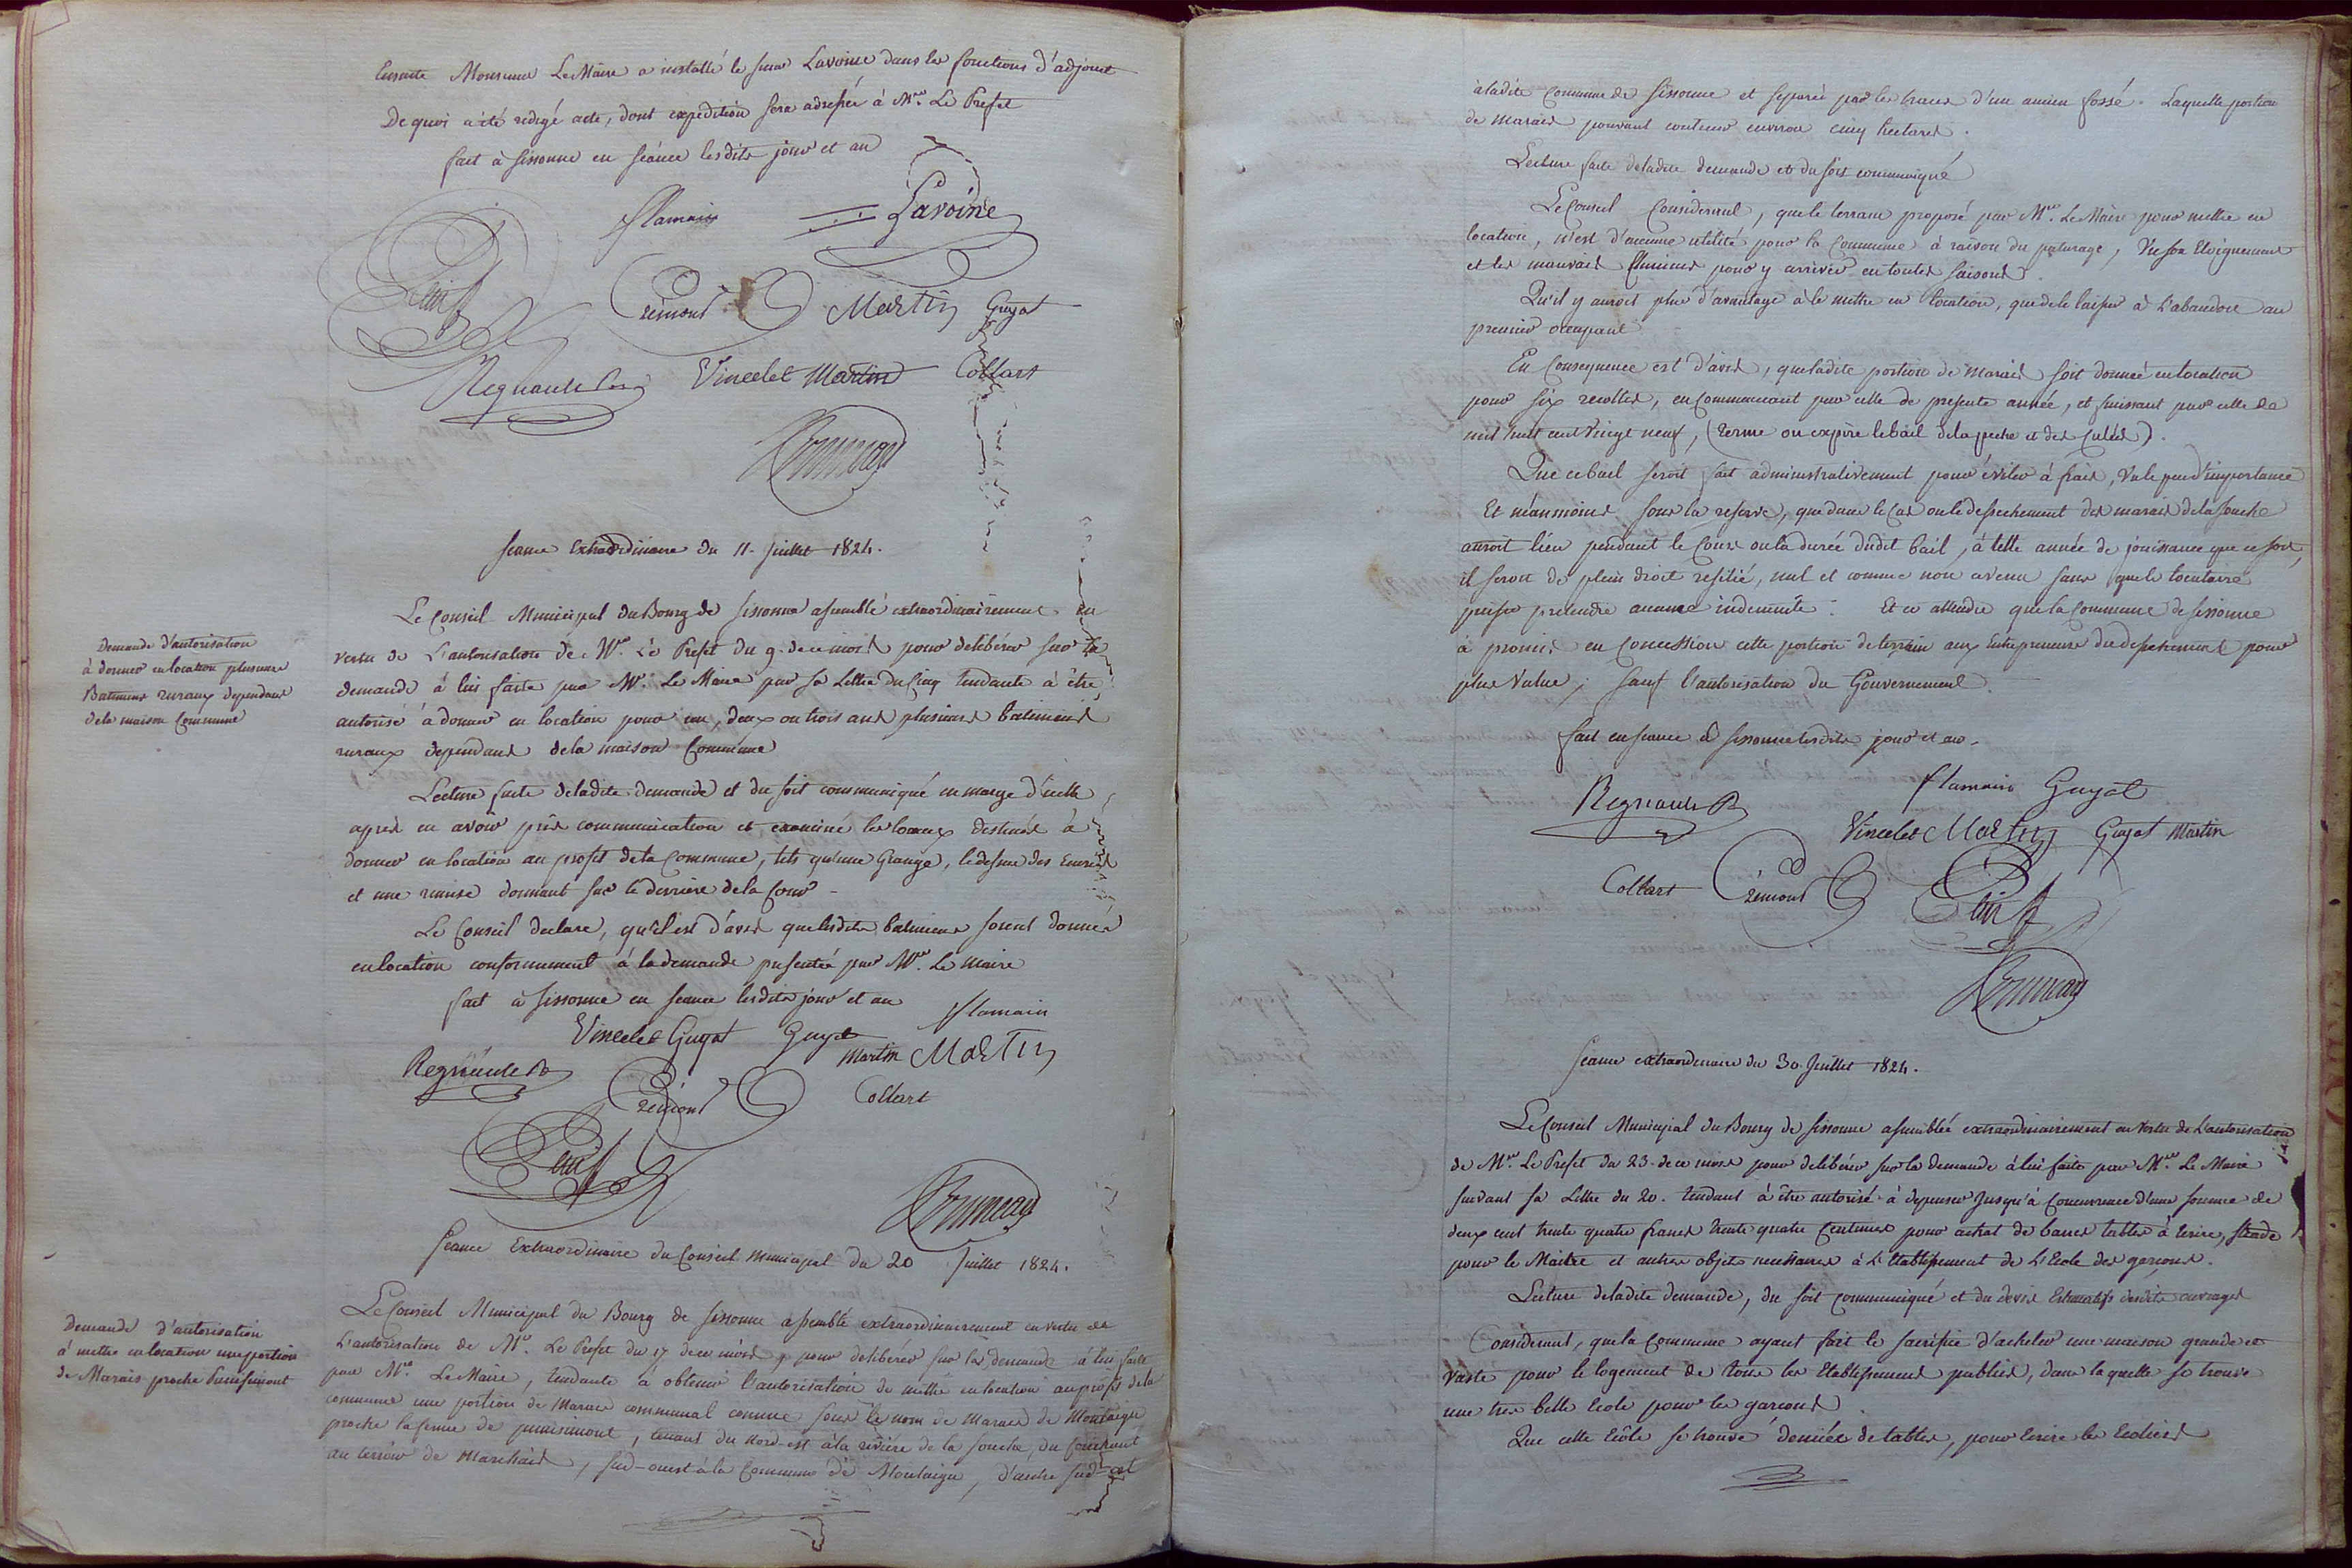 Ensuite Monsieur Le Maire a installé le sieur Lavoine dans les fonctions d'adjoint
De quoi a été redigé acte, dont expedition sera adressée à Mr. Le Prefet
fait à Sissonne en séance lesdits jour et an
flamain Lavoine
Petit Crémont Martin Guyot
Regnault Vincelet Martin Collart
Séance Extraordinaire du 11. Juillet 1824.
Demande d'autorisation
à donner en location plusieurs
Batimens ruraux dependant
de la maison Commune
Le Conseil Municipal du Bourg de Sissonne assemblé extraordinairement en
vertu de L'autorisation de Mr. Le Prefet du 9. de ce mois pour deliberer sur la
demande à lui faite par Mr. Le Maire par sa Lettre du Cinq tendante à être
autorisé à donner en location pour un, deux ou trois ans plusieurs batimens
ruraux dependans de la maison Commune
Lecture faite de ladite demande et du soit communiqué en marge d'icelle
après en avoir pris communication et examiné les locaux destinés à
donner en location au profit de la Commune, tels qu'une Grange, le dessus des Ecuries
et une remise donnant sur le derrière de la Cour
Le Conseil declare, qu'il est d'avis que lesdits batimens soient donnés
en location conformement à la demande presentée par Mr. Le Maire
fait à Sissonne en séance lesdits jour et an
flamain
Vincelet Guyot Guyot
Regnault Martin Martin
Crémont Collart
Petit
Séance Extraordinaire du Conseil Municipal du 20 Juillet 1824.
Demande d'autorisation
à mettre en location une portion
de Marais proche
Le Conseil Municipal du Bourg de Sissonne assemblé extraordinairement en vertu de
L'autorisation de Mr. Le Prefet du 17 de ce mois, pour deliberer sur la demande à lui faite
par Mr. Le Maire, tendante à obtenir l'autorisation de mettre en location au profit de la
commune une portion de Marais communal connue sous le nom de Marais de Montaigu
proche la ferme de , tenant du Nord-est à la rivière de la Souche, du
au terroir de Marchais, sud-ouest à la Commune de Montaigu, d'autre sud-est
à ladite Commune de Sissonne et separée par les traces d'un ancien fossé. Laquelle portion
de marais pouvant contenir environ cinq hectares.
Lecture faite de ladite demande et du soit communiqué
Le Conseil Considerant, que le terrain proposé par Mr. Le Maire pour mettre en
location, n'est d'aucune utilité pour la Commune à raison du paturage, Vu son Eloignement
et les mauvais Chemins pour y arriver en toutes saisons.
Qu'il y auroit plus d'avantage à le mettre en location, que de le laisser à L'abandon au
premier occupant
En Consequence est d'avis, que ladite portion de marais soit donnée en location
pour six recoltes, en Commencant par celle de presente année, et finissant par celle de
mil huit cent Vingt neuf, (terme ou expire le bail de la peche et des ).
Que ce bail seroit fait administrativement pour éviter à frais, Vu le peu d'importance
Et néanmoins sous la reserve, que dans le Cas ou le dessechement des marais de la Souche
auroit lieu pendant le Cours ou la durée dudit bail, à telle année de jouissance que ce soit,
il seroit de plein droit resilié, nul et comme non avenu sans que le locataire
puisse pretendre aucune indemnité. Et ce attendu que la Commune de Sissonne
à promis en Concession cette portion de terrain aux Entrepreneurs du dessechement pour
plus Value; sauf l'autorisation du Gouvernement.
fait en séance à Sissonne lesdits jour et an.
Regnault flamain Guyot
Vincelet Martin Guyot Martin
Collart Crémont Petit
Séance extraordinaire du 30 Juillet 1824.
Le Conseil Municipal du Bourg de Sissonne assemblée extraordinairement en vertu de L'autorisation
de Mr. Le Prefet du 23. de ce mois pour deliberer sur la demande à lui faite par Mr. Le Maire
suivant sa Lettre du 20. tendant à être autorisé à depenser Jusqu'à Concurrence d'une somme de
deux cent trente quatre francs trente quatre Centimes pour achat de bancs tables à ecrire, Strade
pour le Maitre et autres objets necessaires à L'Etablissement de L'Ecole des garcons.
Lecture de ladite demande, du soit Communiqué et du devis Estimatif desdits ouvrages
Considerant, que la Commune ayant fait le sacrifice d'acheter une maison grande et
Vaste pour le logement de tous les Etablissemens publics, dans laquelle se trouve
une tres belle Ecole pour les garcons
Que cette Ecôle se trouve denuée de tables, pour ecrire les Ecoliers